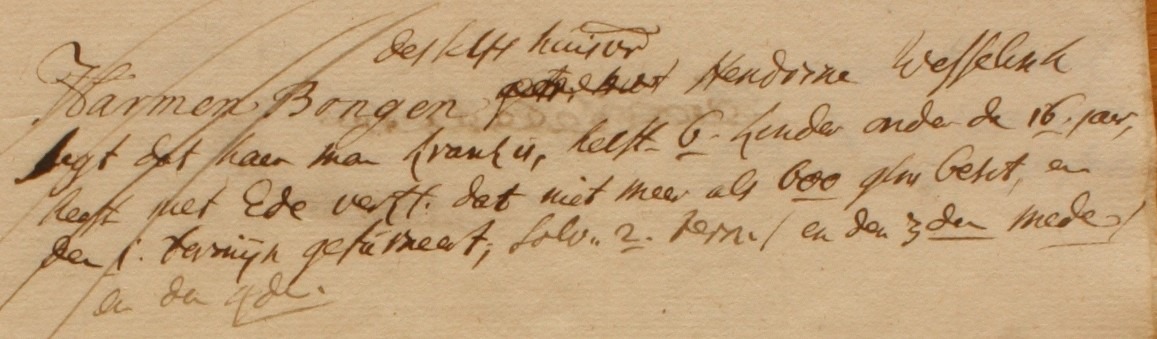 desselfs huisvr
Harmen Bongen Hendrine Wesselink
segt dat haar man krank is, heeft 6 kinder onder de 16 jaar,
heeft met Ede verkl. dat niet meer als 600 gln besit, en
den 1. termijn gefurneert, solv. 2. term / en den 3den mede /
en den 4de.